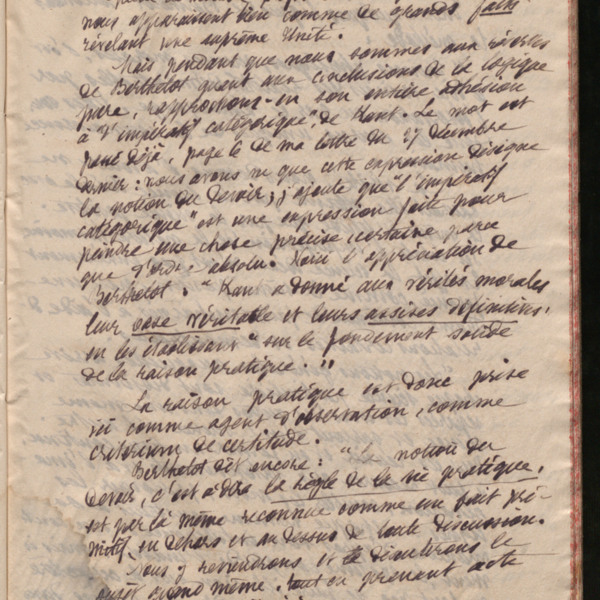 nous apparaissent bien comme de grands faits
révélant une suprême Unité.
Mais pendant que nous sommes aux réserves
de Berthelot quant aux conclusions de la logique
pure, rapprochons-en son entière adhésion
à "l'impératif catégorique", de Kant. Le mot est
passé déjà, page 6 de ma lettre du 27 décembre
dernier : nous avons vu que cette expression désigne
la notion du Devoir ; j'ajoute que "l'impératif
catégorique" est une expression faite pour
peindre une chose précise, certaine parce
que d'ordre absolu. Voici l'appréciation de
Berthelot. "Kant a donné aux vérités morales
leur base véritable et leurs assises définitives,
en les établissant "sur le fondement solide
de la raison pratique."
La raison pratique est donc prise
ici comme agent d'observation, comme
criterium de certitude.
Berthelot dit encore : "La notion du
devoir, c'est à dire la règle de la vie pratique,
est par là même reconnue comme un fait pri-
mitif en dehors et au dessus de toute discussion.
Nous y reviendrons et le discuterons le
sujet quand même, tout en prenant acte